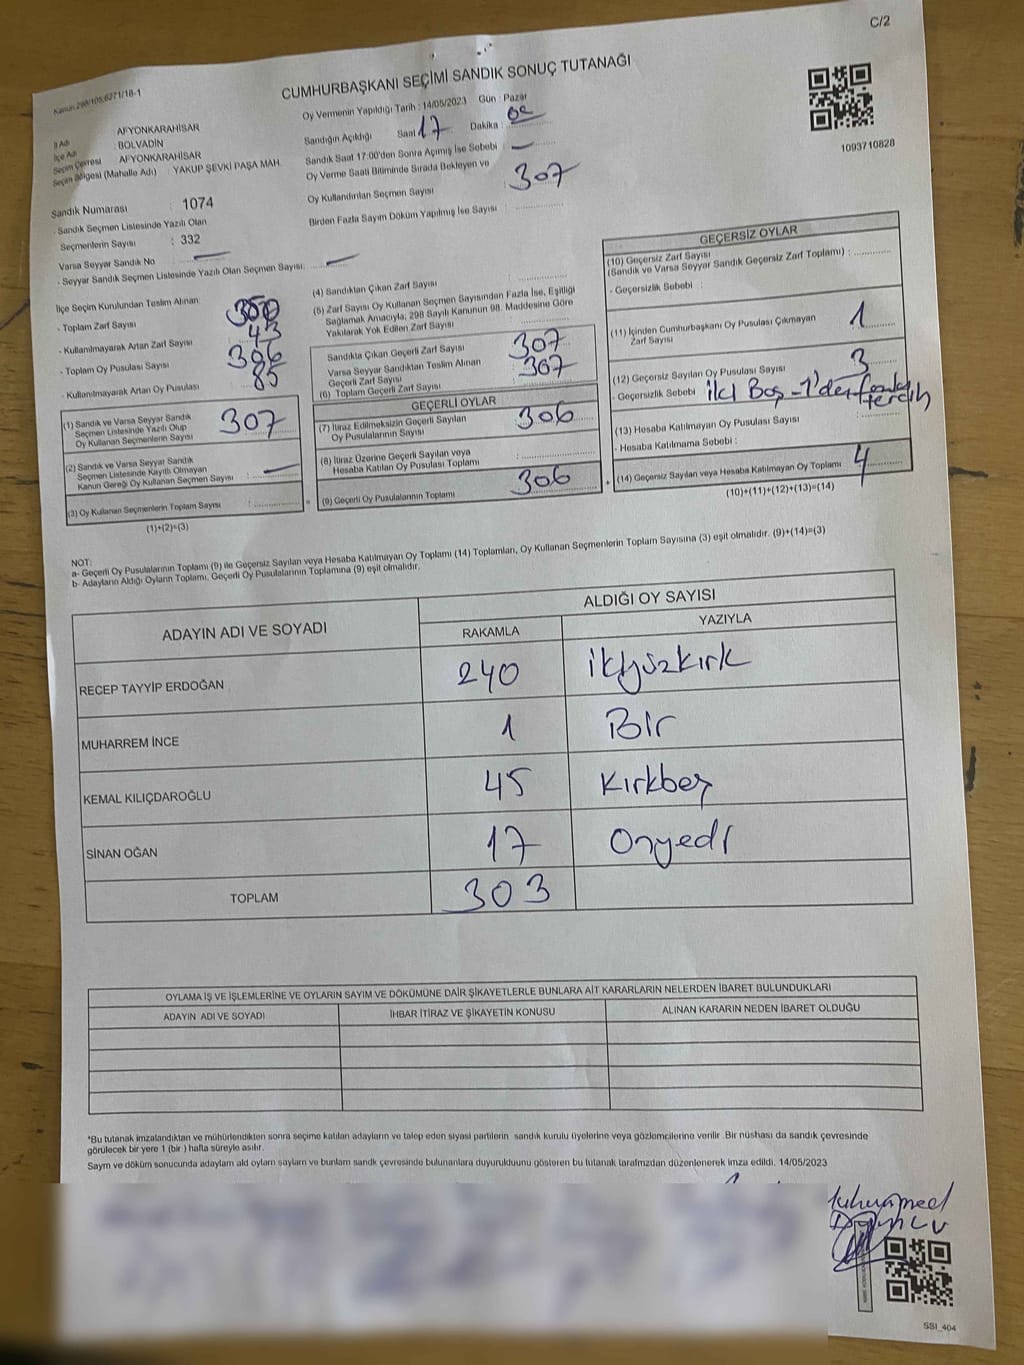 C/2
Kanun 298/105,6271/18-1
CUMHURBAŞKANI SEÇİMİ SANDIK SONUÇ TUTANAĞI
1093710828
İl Adı : AFYONKARAHİSAR
İlçe Adı : BOLVADİN
Seçim Çevresi : AFYONKARAHİSAR
Seçim Bölgesi (Mahalle Adı) : YAKUP ŞEVKİ PAŞA MAH.
Sandık Numarası : 1074
- Sandık Seçmen Listesinde Yazılı Olan
Seçmenlerin Sayısı : 332
Varsa Seyyar Sandık No : —
- Seyyar Sandık Seçmen Listesinde Yazılı Olan Seçmen Sayısı: —
Oy Vermenin Yapıldığı Tarih : 14/05/2023 Gün : Pazar
Sandığın Açıldığı Saat 17 Dakika :
Sandık Saat 17:00'den Sonra Açımış İse Sebebi : —
Oy Verme Saati Bitiminde Sırada Bekleyen ve
Oy Kullandırılan Seçmen Sayısı : 307
Birden Fazla Sayım Döküm Yapılmış İse Sayısı :
İlçe Seçim Kurulundan Teslim Alınan:
- Toplam Zarf Sayısı 350
- Kullanılmayarak Artan Zarf Sayısı 43
- Toplam Oy Pusulası Sayısı
- Kullanılmayarak Artan Oy Pusulası 85
(1) Sandık ve Varsa Seyyar Sandık
Seçmen Listesinde Yazılı Olup
Oy Kullanan Seçmenlerin Sayısı 307
(2) Sandık ve Varsa Seyyar Sandık
Seçmen Listesinde Kayıtlı Olmayan
Kanun Gereği Oy Kullanan Seçmen Sayısı : —
(3) Oy Kullanan Seçmenlerin Toplam Sayısı :
(1)+(2)=(3)
(4) Sandıktan Çıkan Zarf Sayısı
(5) Zarf Sayısı Oy Kullanan Seçmen Sayısından Fazla İse, Eşitliği
Sağlamak Amacıyla; 298 Sayılı Kanunun 98. Maddesine Göre
Yakılarak Yok Edilen Zarf Sayısı
Sandıkta Çıkan Geçerli Zarf Sayısı 307
Varsa Seyyar Sandıktan Teslim Alınan
Geçerli Zarf Sayısı 307
(6) Toplam Geçerli Zarf Sayısı
GEÇERLİ OYLAR
(7) İtiraz Edilmeksizin Geçerli Sayılan
Oy Pusulalarının Sayısı : 306
(8) İtiraz Üzerine Geçerli Sayılan veya
Hesaba Katılan Oy Pusulası Toplamı :
(9) Geçerli Oy Pusulalarının Toplamı : 306
GEÇERSİZ OYLAR
(10) Geçersiz Zarf Sayısı
(Sandık ve Varsa Seyyar Sandık Geçersiz Zarf Toplamı) :
- Geçersizlik Sebebi :
(11) İçinden Cumhurbaşkanı Oy Pusulası Çıkmayan
Zarf Sayısı : 1
(12) Geçersiz Sayılan Oy Pusulası Sayısı : 3
- Geçersizlik Sebebi : İki Boş - 1'den fazla tercih
(13) Hesaba Katılmayan Oy Pusulası Sayısı :
- Hesaba Katılmama Sebebi :
(14) Geçersiz Sayılan veya Hesaba Katılmayan Oy Toplamı : 4
(10)+(11)+(12)+(13)=(14)
NOT:
a- Geçerli Oy Pusulalarının Toplamı (9) ile Geçersiz Sayılan veya Hesaba Katılmayan Oy Toplamı (14) Toplamları, Oy Kullanan Seçmenlerin Toplam Sayısına (3) eşit olmalıdır. (9)+(14)=(3)
b- Adayların Aldığı Oyların Toplamı, Geçerli Oy Pusulalarının Toplamına (9) eşit olmalıdır.
ADAYIN ADI VE SOYADI ALDIĞI OY SAYISI
RAKAMLA YAZIYLA
RECEP TAYYİP ERDOĞAN 240 ikiyüzkırk
MUHARREM İNCE 1 Bir
KEMAL KILIÇDAROĞLU 45 Kırkbeş
SİNAN OĞAN 17 Onyedi
TOPLAM 303
OYLAMA İŞ VE İŞLEMLERİNE VE OYLARIN SAYIM VE DÖKÜMÜNE DAİR ŞİKAYETLERLE BUNLARA AİT KARARLARIN NELERDEN İBARET BULUNDUKLARI
ADAYIN ADI VE SOYADI İHBAR İTİRAZ VE ŞİKAYETİN KONUSU ALINAN KARARIN NEDEN İBARET OLDUĞU
*Bu tutanak imzalandıktan ve mühürlendikten sonra seçime katılan adayların ve talep eden siyasi partilerin sandık kurulu üyelerine veya gözlemcilerine verilir .Bir nüshası da sandık çevresinde
görülecek bir yere 1 (bir ) hafta süreyle asılır.
Saym ve döküm sonucunda adaylam ald oylam saylam ve bunlam sandk çevresinde bulunanlara duyurukduunu gösteren bu tutanak tarafmzdan düzenlenerek imza edildi. 14/05/2023
SSI_404